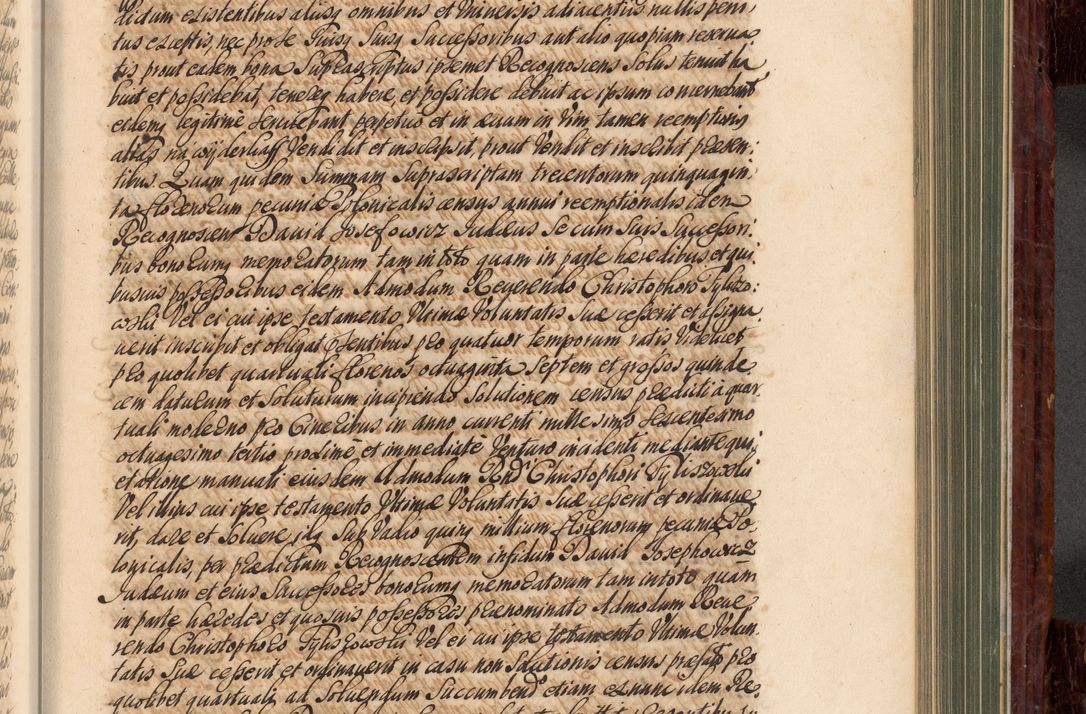 didum existentibus aliisq omnibus et Universis adiacentiis nullis peni
tus exceptis, nec pro se Suisq Suisq Successoribus aut alio quopiam reserua
tis prout eadem bona Suprascriptus ipsemet Recognoscens Solus tenuit ha
buit et possidebat, tenereq habere, et possidere debuit ac ipsum concernebant
eidemq legitime Seruiebant perpetuo et in æuum in Vim tamen reemptionis
alias na wyderkaff Vendidit et inscripsit, prout Vendit et inscribit præsen:
tibus Quam quidem Summam Suprascriptam trecentorum quinquagin
ta florenorum pecuniæ Polonicalis census annui reemptionalis idem
Recognoscens David Josefowicz Judæus Se cum Suis Successori:
bus bonorumq memoratorum tam in toto quam in parte hæredibus et qui
busuis possessoribus eidem Admodum Reuerendo Christophoro Tyliszo:
wski Vel ei cui ipse testamento Ultimæ Voluntatis Suæ cesserit et assigna
uerit inscripsit et obligat præsentibus pro quatuor temporum ratis Videlicet
pro quolibet quartuali florenos octuaginta Septem et grossos quinde
cem daturum et Soluturum, incipiendo Solutionem census prædicti à quar
tuali moderno pro Cineribus in anno currenti millesimo Sexcentesimo
octuagesimo tertio proxime, et immediatè Venturo incidenti mediante quie
etatione manuali eiusdem Admodum Rndi Christophori Tyliszowski
Vel illius cui ipse testamento Ultimæ Voluntatis Suæ cesserit et ordinaue
rit, dare et Soluere, idq Sub Vadio quinq millium florenorum pecuniæ Po
lonicalis, per prædictum Recognoscentem infidum David Josephowicz
Judæum et eius Successores bonorumq memoratorum tam in toto quam
in parte hæredes et quosuis possessores prænominato Admodum Reue
rendo Christophoro Tyliszowski Vel ei cui ipse testamento Ultimæ Volun
tatis Suæ cesserit et ordinauerit in casu non Solutionis census præfati pro
quolibet quartuali ad Soluendum Succumbend etiam ex nunc idem Re